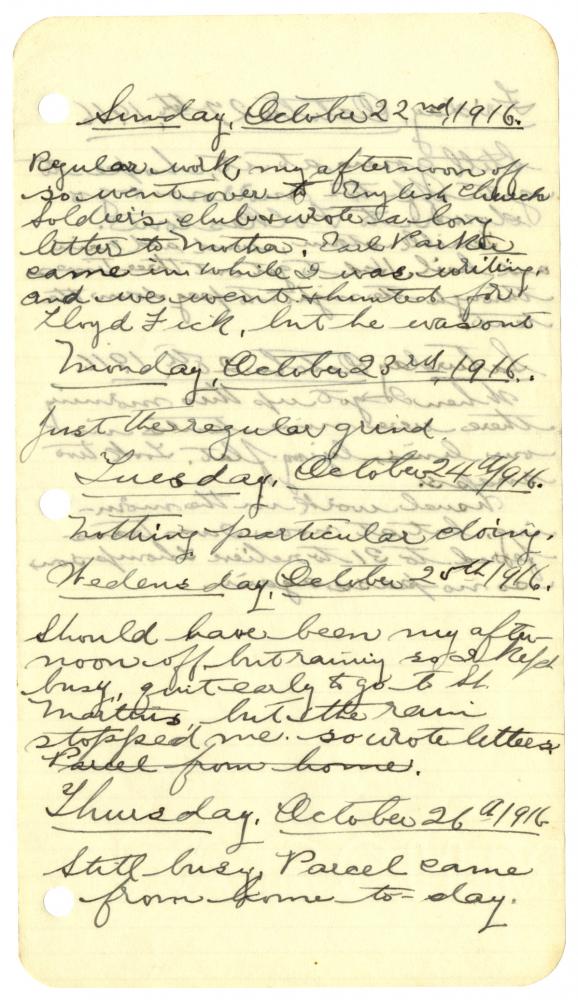 Sunday, October 22nd, 1916.
Regular work my afternoon off
so went over to English Church
Soldier's club & wrote a long
letter to Mother, Earl Parker
came in while I was writing,
and we went & hunted for
Lloyd Fick, but he was out
Monday, October 23rd, 1916.
Just the regular grind.
Tuesday, October 24th/916.
Nothing particular doing.
Wedensday, October 25th 1916.
Should have been my after-
noon off, but rainy so I kept
busy, quit early to go to St.
Martins, but the rain
stopped me. so wrote letters
Parcel from home.
Thursday, October 26th/1916
Still busy, Parcel came
from home to-day.